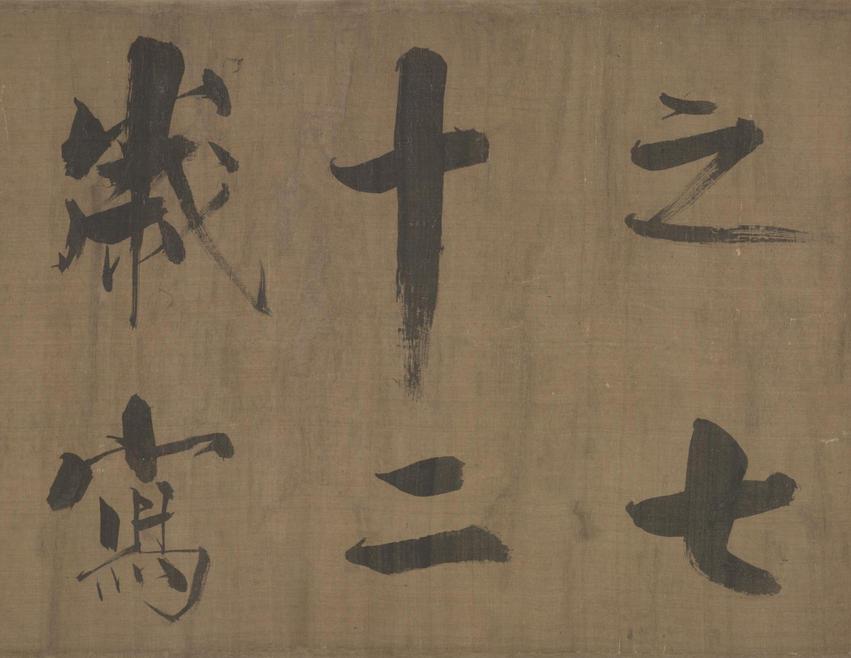 之七
十二
歲寫